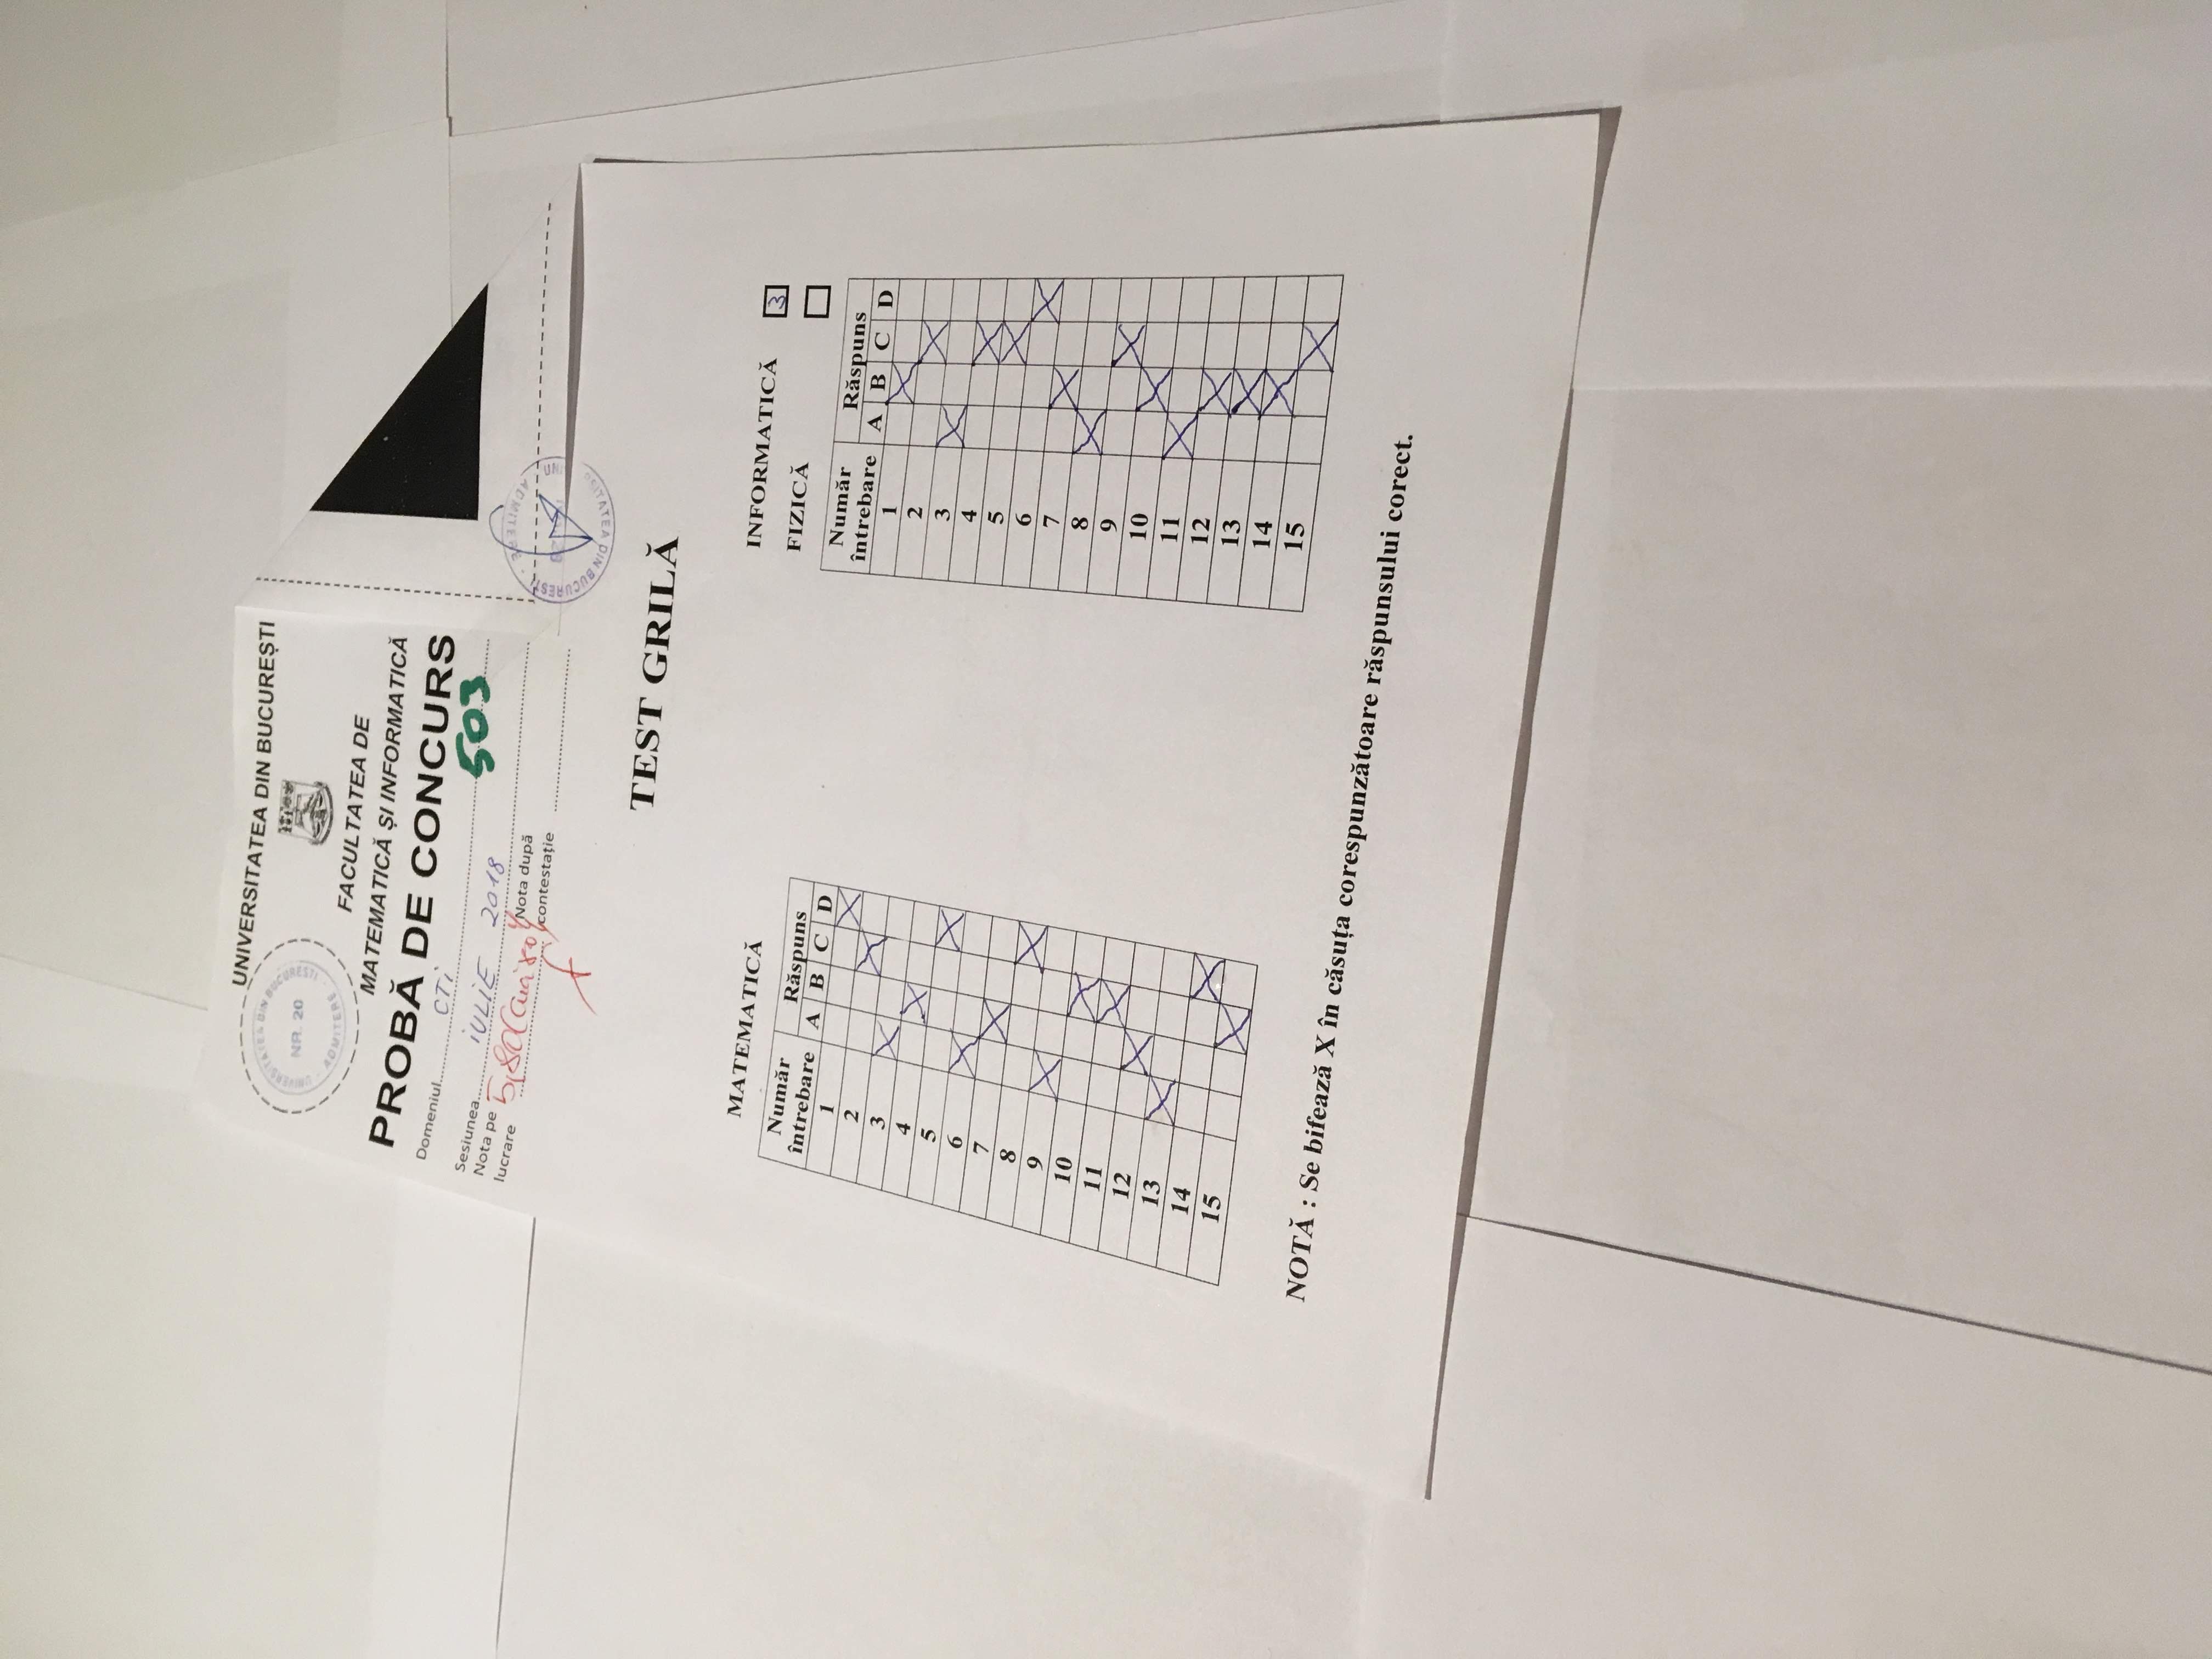 UNIVERSITATEA DIN BUCUREȘTI
UNIVERSITATEA DIN BUCUREȘTI
NR. 20
ADMITERE
FACULTATEA DE
MATEMATICĂ ȘI INFORMATICĂ
PROBĂ DE CONCURS
Domeniul CTi
503
Sesiunea iULiE 2018
Nota pe lucrare 5,80
Nota după contestație
ADMITERE
UNIVERSITATEA DIN BUCUREȘTI
TEST GRILĂ
MATEMATICĂ
Număr întrebare Răspuns
A B C D
1 X
2 X
3 X
4 X
5 X
6 X
7 X
8 X
9 X
10 X
11 X
12 X
13 X
14 X
15 X
INFORMATICĂ 3
FIZICĂ
Număr întrebare Răspuns
A B C D
1 X
2 X
3 X
4 X
5 X
6 X
7 X
8 X
9 X
10 X
11 X
12 X
13 X
14 X
15 X
NOTĂ : Se bifează X în căsuța corespunzătoare răspunsului corect.